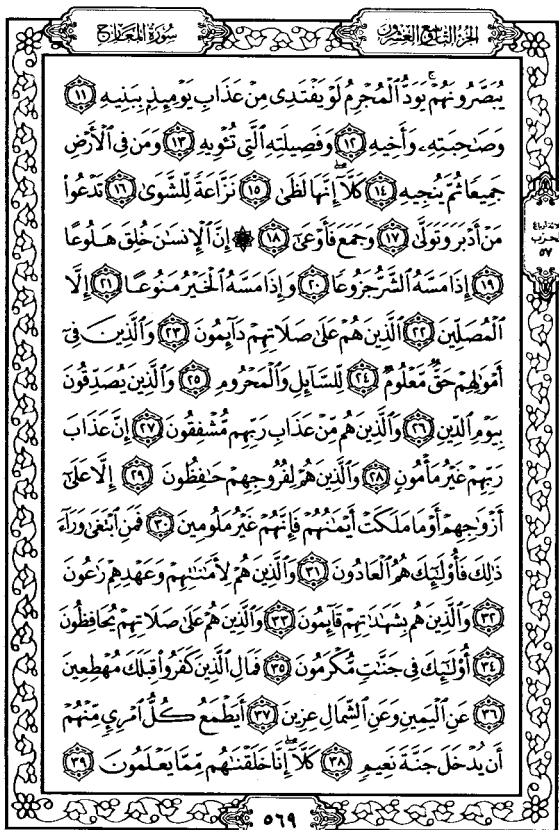 سُورَةُ المَعَارِجِ
الجُزءُ التَّاسِعُ وَالعِشْرُونَ
يُبَصَّرُونَهُمْ ۚ يَوَدُّ ٱلْمُجْرِمُ لَوْ يَفْتَدِى مِنْ عَذَابِ يَوْمِئِذٍۭ بِبَنِيهِ ١١
وَصَٰحِبَتِهِۦ وَأَخِيهِ ١٢ وَفَصِيلَتِهِ ٱلَّتِى تُـْٔوِيهِ ١٣ وَمَن فِى ٱلْأَرْضِ
جَمِيعًا ثُمَّ يُنجِيهِ ١٤ كَلَّآ ۖ إِنَّهَا لَظَىٰ ١٥ نَزَّاعَةً لِّلشَّوَىٰ ١٦ تَدْعُوا۟
مَنْ أَدْبَرَ وَتَوَلَّىٰ ١٧ وَجَمَعَ فَأَوْعَىٰٓ ١٨ ۞ إِنَّ ٱلْإِنسَٰنَ خُلِقَ هَلُوعًا
١٩ إِذَا مَسَّهُ ٱلشَّرُّ جَزُوعًا ٢٠ وَإِذَا مَسَّهُ ٱلْخَيْرُ مَنُوعًا ٢١ إِلَّا
ٱلْمُصَلِّينَ ٢٢ ٱلَّذِينَ هُمْ عَلَىٰ صَلَاتِهِمْ دَآئِمُونَ ٢٣ وَٱلَّذِينَ فِىٓ
أَمْوَٰلِهِمْ حَقٌّ مَّعْلُومٌ ٢٤ لِّلسَّآئِلِ وَٱلْمَحْرُومِ ٢٥ وَٱلَّذِينَ يُصَدِّقُونَ
بِيَوْمِ ٱلدِّينِ ٢٦ وَٱلَّذِينَ هُم مِّنْ عَذَابِ رَبِّهِم مُّشْفِقُونَ ٢٧ إِنَّ عَذَابَ
رَبِّهِمْ غَيْرُ مَأْمُونٍ ٢٨ وَٱلَّذِينَ هُمْ لِفُرُوجِهِمْ حَٰفِظُونَ ٢٩ إِلَّا عَلَىٰٓ
أَزْوَٰجِهِمْ أَوْ مَا مَلَكَتْ أَيْمَٰنُهُمْ فَإِنَّهُمْ غَيْرُ مَلُومِينَ ٣٠ فَمَنِ ٱبْتَغَىٰ وَرَآءَ
ذَٰلِكَ فَأُو۟لَٰٓئِكَ هُمُ ٱلْعَادُونَ ٣١ وَٱلَّذِينَ هُمْ لِأَمَٰنَٰتِهِمْ وَعَهْدِهِمْ رَٰعُونَ
٣٢ وَٱلَّذِينَ هُم بِشَهَٰدَٰتِهِمْ قَآئِمُونَ ٣٣ وَٱلَّذِينَ هُمْ عَلَىٰ صَلَاتِهِمْ يُحَافِظُونَ
٣٤ أُو۟لَٰٓئِكَ فِى جَنَّٰتٍ مُّكْرَمُونَ ٣٥ فَمَالِ ٱلَّذِينَ كَفَرُوا۟ قِبَلَكَ مُهْطِعِينَ
٣٦ عَنِ ٱلْيَمِينِ وَعَنِ ٱلشِّمَالِ عِزِينَ ٣٧ أَيَطْمَعُ كُلُّ ٱمْرِئٍ مِّنْهُمْ
أَن يُدْخَلَ جَنَّةَ نَعِيمٍ ٣٨ كَلَّآ ۖ إِنَّا خَلَقْنَٰهُم مِّمَّا يَعْلَمُونَ ٣٩
الحزب
٥٧
٥٦٩